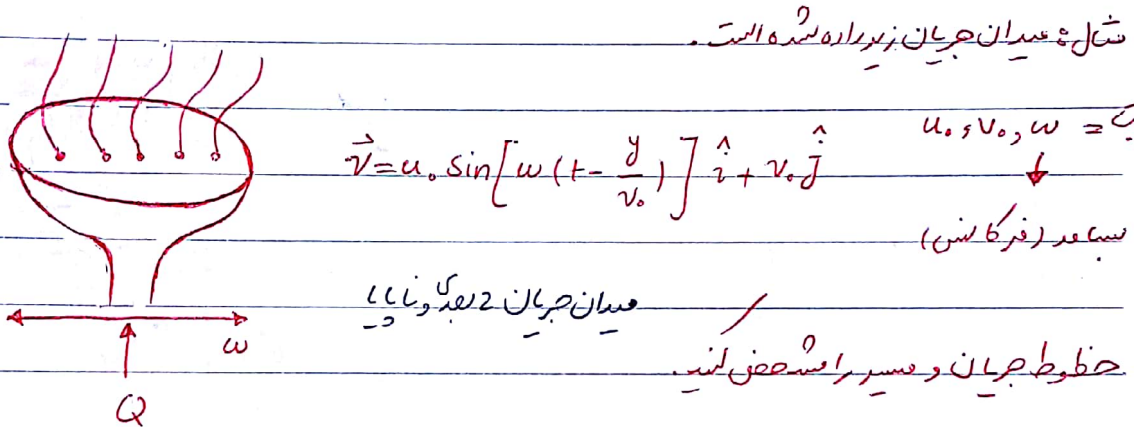 مثال: میدان جریان زیر داده شده است.
u₀, v₀, ω = C
V⃗ = u₀ sin[ω(t - y/v₀)] î + v₀ ĵ
بسامد (فرکانس)
میدان جریان 2 بعدی و ناپایا
ω
خطوط جریان و مسیر را مشخص کنید.
Q